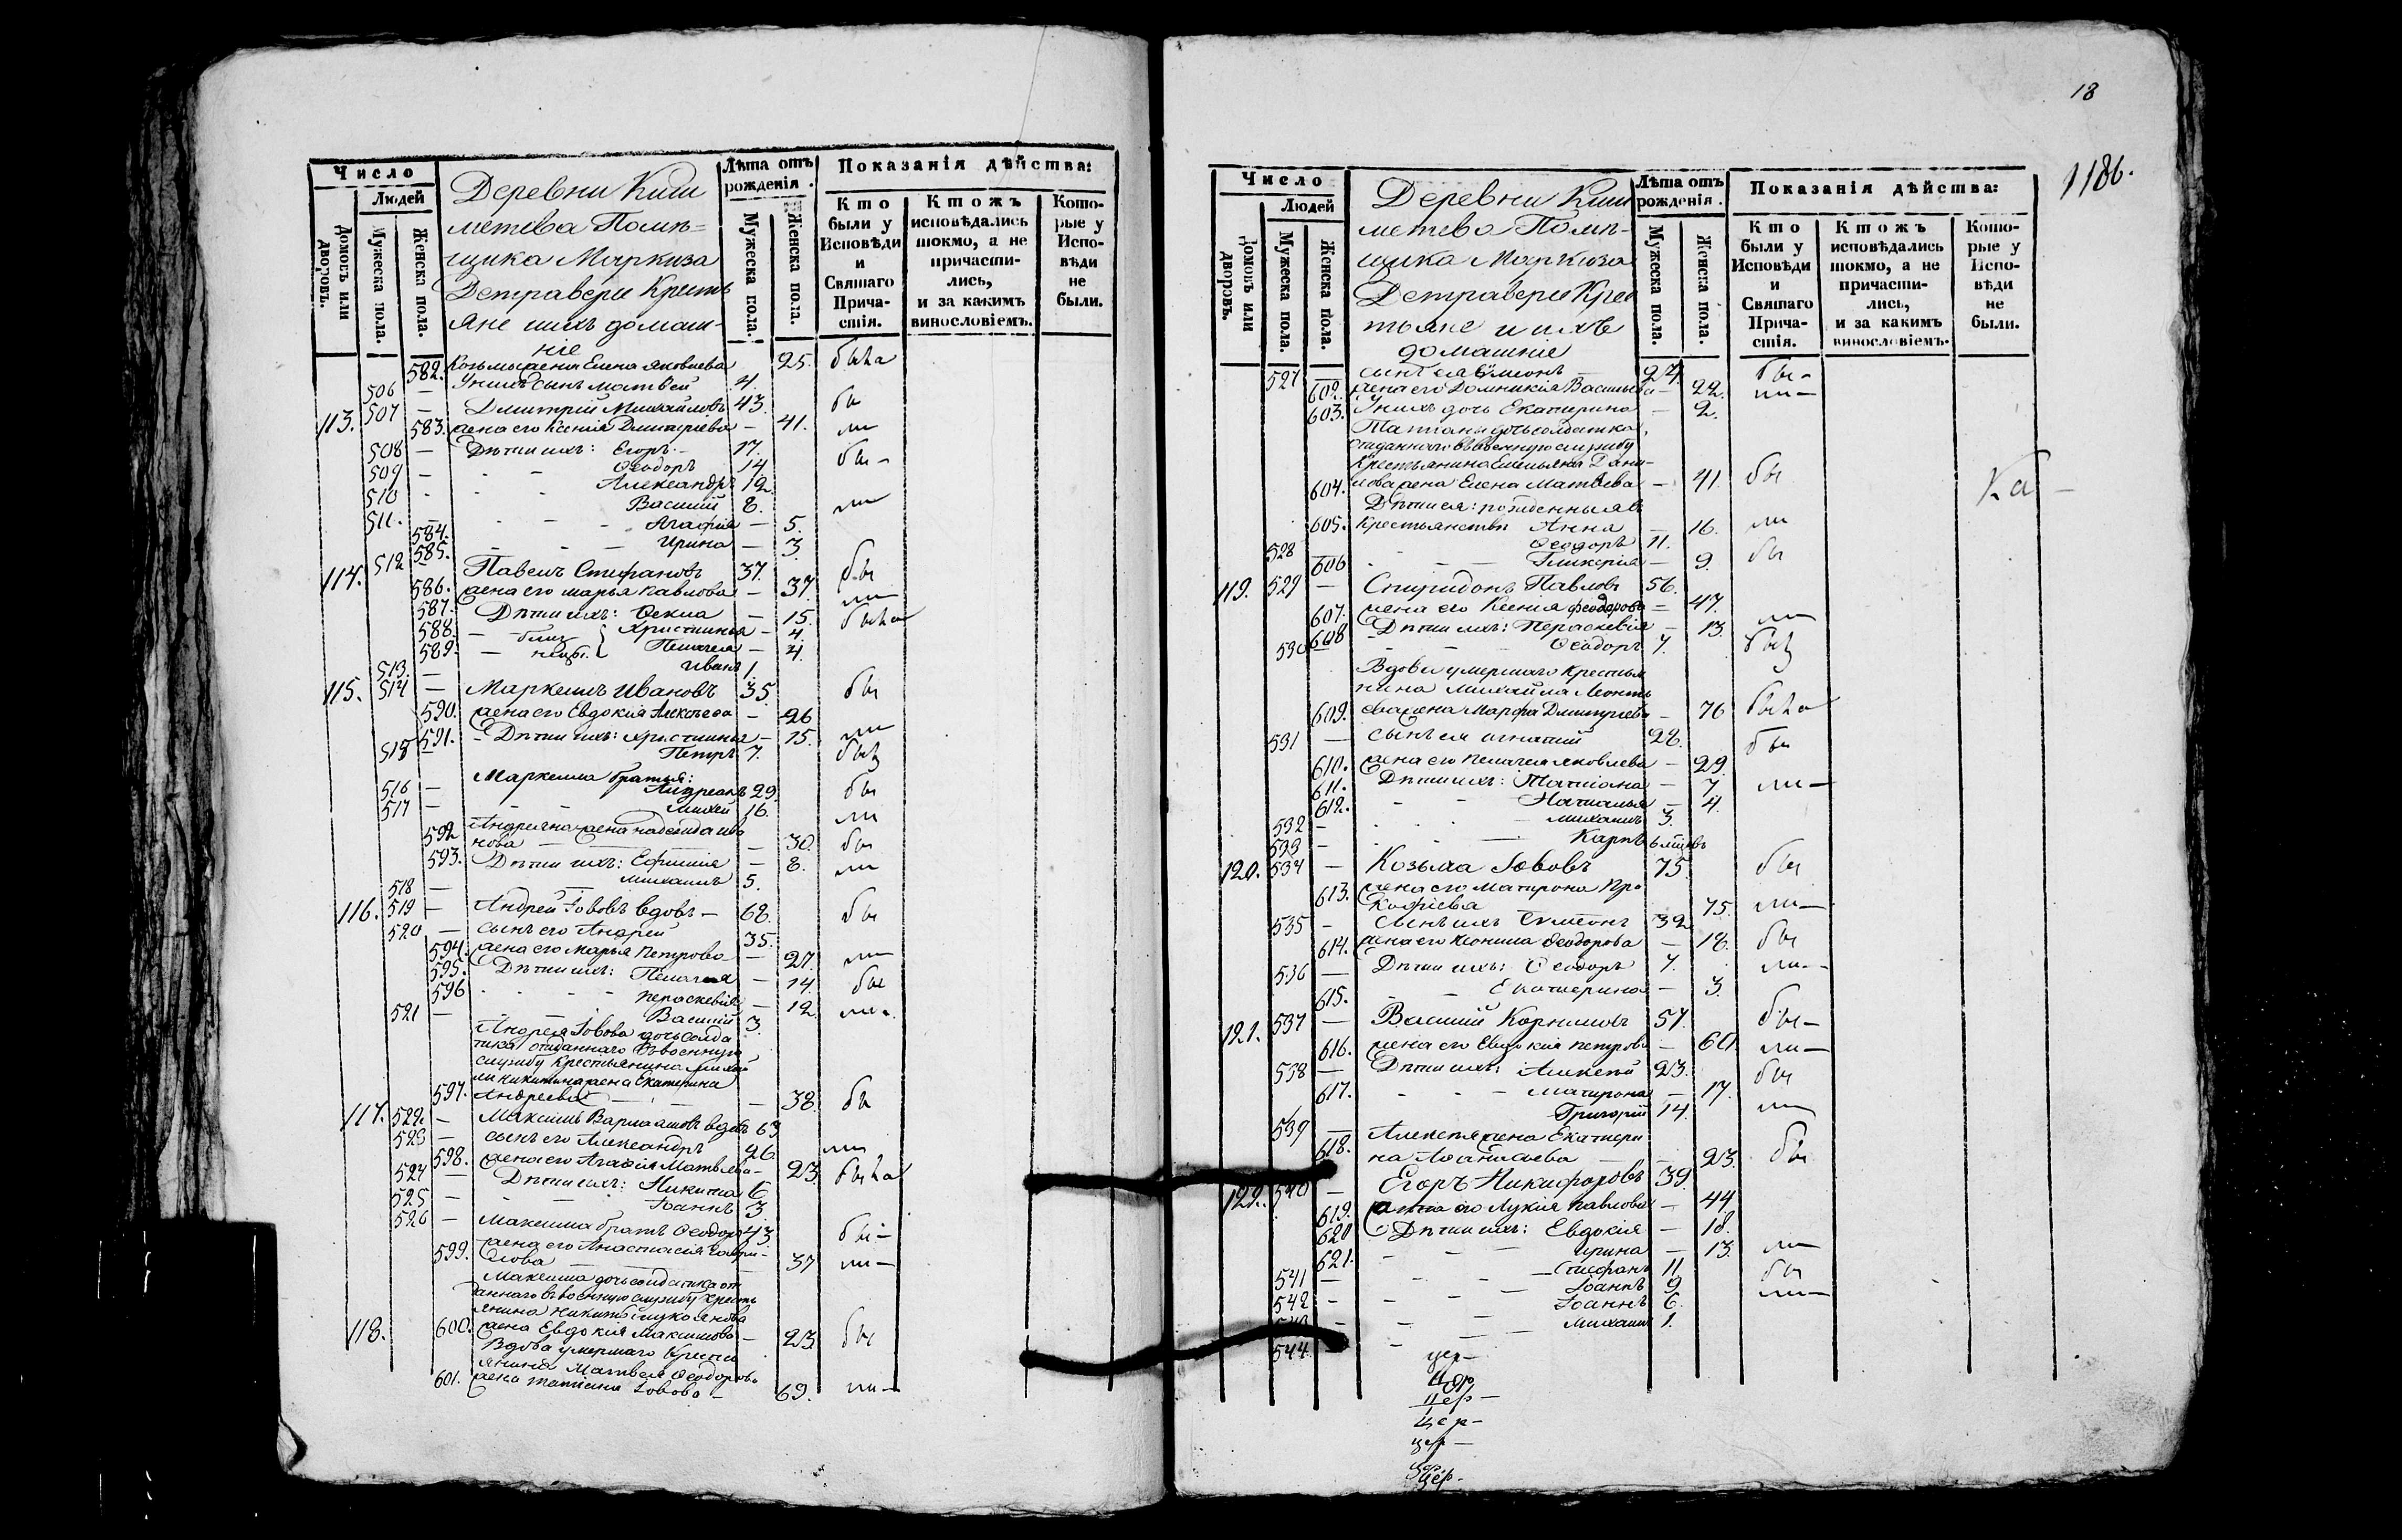 Число
Людей
Домовъ или дворовъ.
Мужеска пола.
Женска пола.
Деревни Киш
метева Помѣ=
щика Маркиза
Детраверсе Кресть
яне ихъ домаш-
ніе
Лѣта отъ
рожденія.
Мужеска пола.
Женска пола.
Показанія дѣйства:
Кто
были у
Исповѣди
и
Святаго
Прича-
стія.
Ктожъ
исповѣдались
токмо, а не
причасти-
лись,
и за какимъ
винословіемъ.
Кото-
рые у
Испо-
вѣди
не
были.
582. Козьмы жена Елена Яковлева 25. была
506 — У нихъ сынъ Матвей 4.
113. 507 — Дмитрій Михайловъ 43. бы
583. жена его Ксенія Дмитріева — 41. ли
508 — Дѣти ихъ: Егоръ 17. бы-
509 — Ѳеодоръ 14
510 - Александръ 12 ли
511. — Василий 8.
584. Агафія — 5.
585. Ирина — 3
114. 512 Павелъ Стефановъ 37. бы
586. жена его Марья Павлова — 37. ли
587. Дѣти ихъ: Ѳекла — 15. была
588. — близ Христинья — 4.
589. — нецы. Пелагея — 4.
513. — Иванъ 1.
115. 514 — Маркеллъ Ивановъ 35. бы
590. жена его Евдокия Алексеева — 26 ли
591. Дѣти ихъ: Христинья — 15.
515 — Петръ 7.
Маркелла братья:
516 — Андреанъ 29. бы
517 — Михей 16. ли
Андреяна жена Надежда Ива
592 нова — 30. бы
593. Дѣти ихъ: Ефимия — 8. ли
518 — Михаилъ 5.
116. 519 — Андрей Іововъ вдовъ — 68. бы
520 — сынъ его Андрей 35.
594. жена его Марья Петрова — 27. ли
595. Дѣти ихъ: Пелагея — 14. бы
596 Пераскевія — 12. ли.
521 — Василий 3.
Андрея Іовова дочь солда
тка отданнаго въ военную
службу крестьянина Михай
ли Никитина жена Екатерина
597. Андреева — 38. бы
117. 522. — Максимъ Варлаамовъ вдовъ 63
523 — сынъ его Александръ 26 ли
598. жена его Агафія Матвѣева — 23 была
524 — Дѣти ихъ: Никита 6
525 — Іоаннъ 3.
526 — Максима братъ Ѳеодоръ 43 бы-
жена его Анастасія Гаври-
599. лова — 37 ли-
Максима дочь солдатка от
даннаго въ военную службу кресть
янина Никиты Лукоянова
118. 600. жена Евдокія Максимова — 23 бы
Вдова умершаго крестья
янина Матвея Ѳеодорова
601. жена Татіана Іовова — 69. ли-
18
1186.
Число
Людей
Домовъ или дворовъ.
Мужеска пола.
Женска пола.
Деревни Киш
метево Помѣ-
щика Маркиза
Детраверсе Крес
тьяне и ихъ
домашніе
Лѣта отъ
рожденія.
Мужеска пола.
Женска пола.
Показанія дѣйства:
Кто
были у
Исповѣди
и
Святаго
Прича-
стія.
Ктожъ
исповѣдались
токмо, а не
причасти-
лись,
и за какимъ
винословіемъ.
Кото-
рые у
Испо-
вѣди
не
были.
527 — сынъ ея Симеонъ — 24. бы-
602. жена его Домникія Васильева — 22. ли-
603. У нихъ дочь Екатерина — 2.
Татіаны дочь солдатка,
отданнаго въ военную службу
Крестьянина Емельяна Дани-
604. лова жена Елена Матвѣева — 41. бы
Дѣти ея: рожденныя въ
605. крестьянствѣ Анна — 16. ли
528 Ѳеодоръ 11.
606 Гликерія — 9. бы
119. 529 — Спиридонъ Павловъ 56.
607. жена его Ксенія Феодорова — 47. ли
608 Дѣти ихъ: Пераскевія — 13.
530 — Ѳеодоръ 7.
Вдова умершаго крестья
нина Михайла Леонть
609. ева жена Марфа Дмитриева — 76 была
531 — сынъ ея Игнатий 28. бы
610. жена его Пелагея Яковлева — 29.
611. Дѣти ихъ: Татіана — 7 ли-
612. Наталья — 4.
532 - Михаилъ 3.
533 - Карпъ 6 мцовъ
120. 534 — Козьма Іововъ 75 бы
613. жена его Матрона Про
кофіева 75. ли-
535 - Сынъ ихъ Симеонъ 32
614. жена его Ксонима Ѳеодорова — 18. бы
536 — Дѣти ихъ: Ѳеодоръ 7. ли-
615. Екатерина — 3.
121. 537 — Василий Корниловъ 57. бы-
616. жена его Евдокия Петрова — 60 ли-
538 — Дѣти ихъ: Алексѣй 23. бы
617. Матрона — 17.
539 — Григорий 14. ли
Алексея жена Екатери
618. на Аѳанасьева — 23. бы
122. 540 — Егоръ Никифоровъ 39.
619. жена его Лукия Павлова — 44.
620 Дѣти ихъ: Евдокія — 18.
621. Ирина — 13. ли
541 — Стефанъ 11 бы
542 - Іоаннъ 9 ли-
Іоаннъ 6.
544 - Михаилъ 1.
цер-
Цер
цер-
цер-
цер-
цер.
цер.